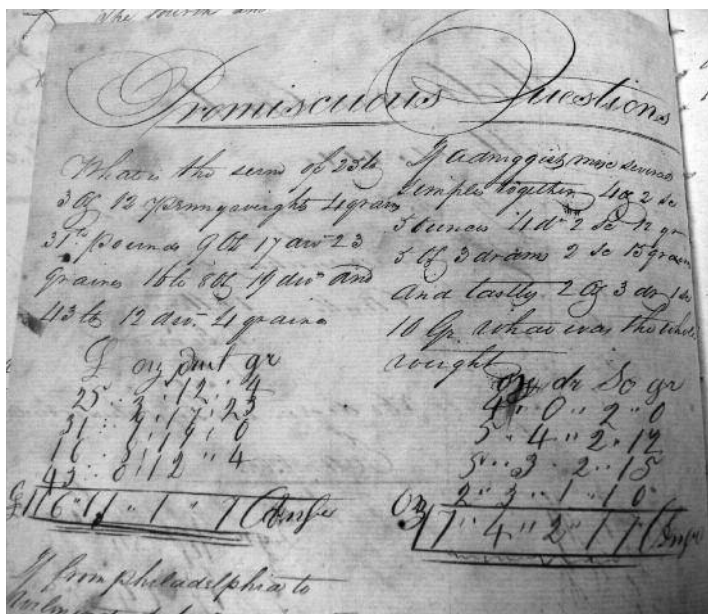 the fourth
Promiscuous Questions
What is the sum of 25 lb
3 oz 12 pennyweight 4 grains
31 lb pounds 9 oz 17 dwt 23
grains 16 lb 8 oz 19 dwt and
43 lb 12 dwt. 4 grains
oz pwt gr
25 " 3 " 12 " 4
31 " 9 " 17 " 23
16 " 8 " 19 " 0
43 " 0 " 12 " 4
116 " 11 " 1 " 7 (Answ
If from Philadelphia to
If a druggist mix several
simples together 4 oz 2 sc
5 ounces 4 dr 2 sc 12 gr
5 oz 3 drams 2 sc 15 grains
and lastly 2 oz 3 dr 1 sc
10 Gr. what was the whole
weight
oz dr Sc gr
4 " 0 " 2 " 0
5 " 4 " 2 " 12
5 " 3 " 2 " 15
2 " 3 " 1 " 10
Oz 17 " 4 " 2 " 17 (Answ